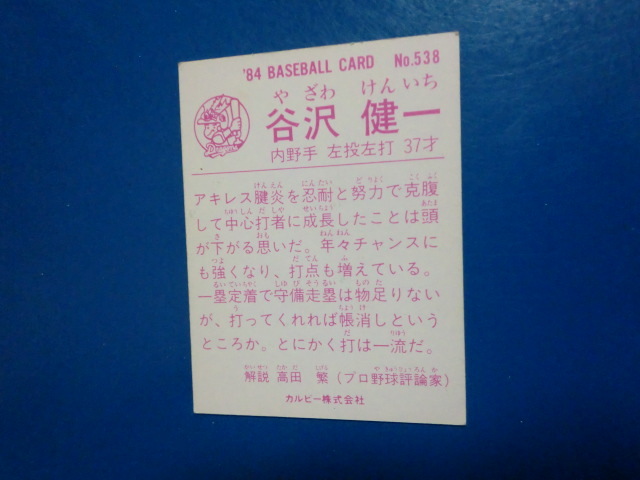 '84 BASEBALL CARD No.538
や ざわ けん いち
谷沢 健一
内野手 左投左打 37才
アキレス腱炎を忍耐と努力で克腹
して中心打者に成長したことは頭
が下がる思いだ。年々チャンスに
も強くなり、打点も増えている。
一塁定着で守備走塁は物足りない
が、打ってくれれば帳消しという
ところか。とにかく打は一流だ。
解説 高田 繁 (プロ野球評論家)
カルビー株式会社